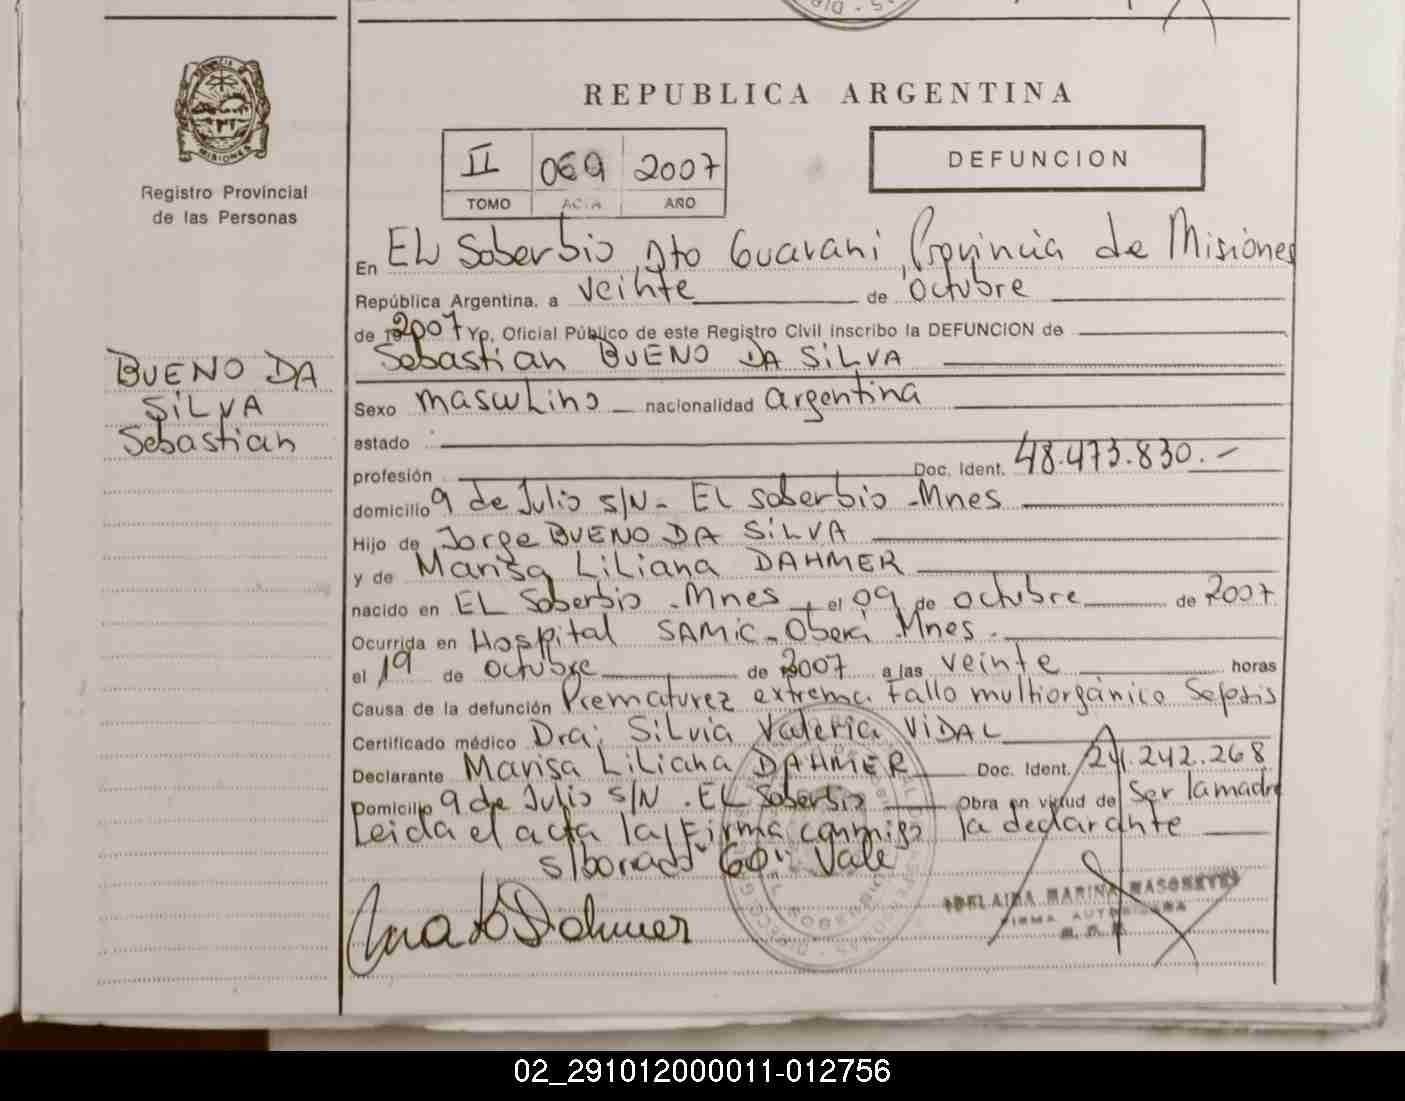 REPUBLICA ARGENTINA
MISIONES
Registro Provincial
de las Personas
II 069 2007
TOMO ACTA AÑO
DEFUNCION
En EL Soberbio, Dto Guarani, Provincia de Misiones
República Argentina, a veinte de octubre
de 2007 Yo, Oficial Público de este Registro Civil inscribo la DEFUNCION de
Sebastian BUENO DA SILVA
BUENO DA
SILVA
Sebastian
Sexo masculino nacionalidad argentina
estado
profesión Doc. Ident. 48.473.830.-
domicilio 9 de Julio s/N - EL Soberbio - Mnes
Hijo de Jorge BUENO DA SILVA
y de Marisa Liliana DAHMER
nacido en EL Soberbio - Mnes el 09 de octubre de 2007
Ocurrida en Hospital SAMIC - Oberá Mnes.
el 19 de octubre de 2007 a las veinte horas
Causa de la defunción Prematurez extrema. Fallo multiorgánico Sepsis
Certificado médico Dra. Silvia Valeria VIDAL
Declarante Marisa Liliana DAHMER Doc. Ident. 24.242.268
Domicilio 9 de Julio s/N . EL Soberbio Obra en virtud de Ser la madre
Leida el acta la firma conmigo la declarante
s/borrado "60" Vale
MARINA
FIRMA AUTORIZADA
02_291012000011-012756